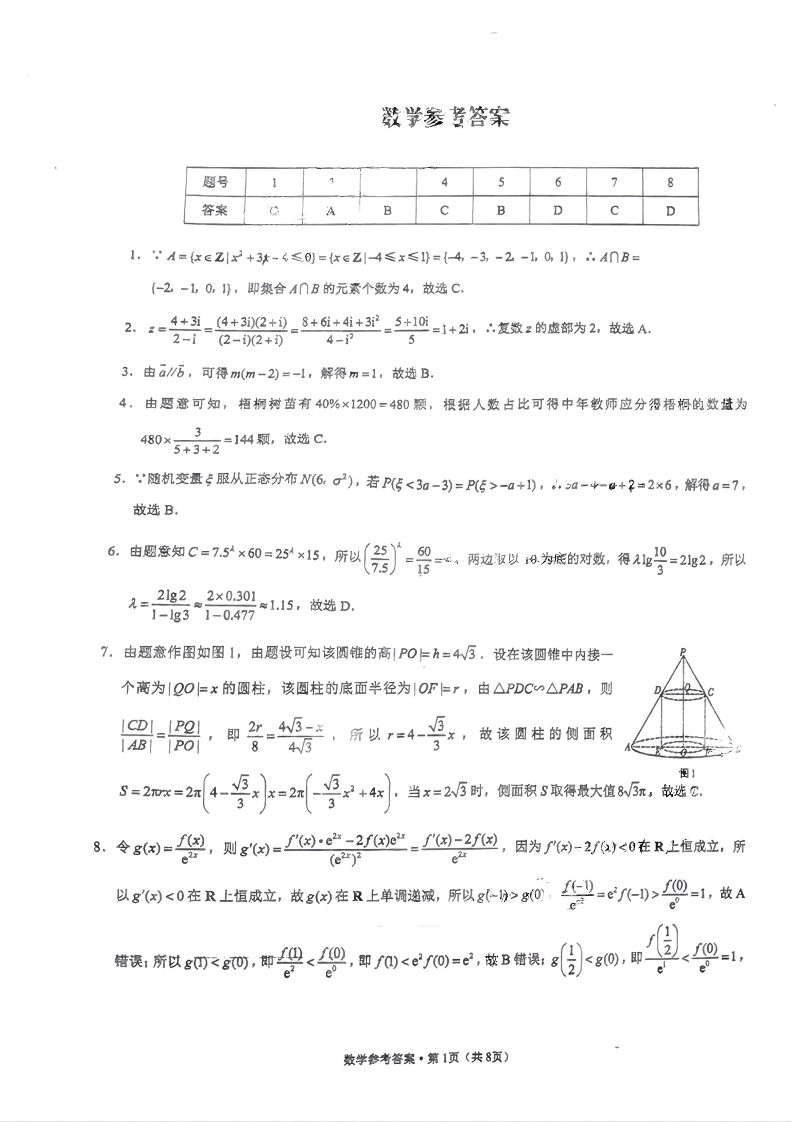 数学参考答案
题号 1 4 5 6 7 8
答案 C A B C B D C D
1. ∵A={x∈Z|x²+3x-4≤0}={x∈Z|-4≤x≤1}={-4, -3, -2, -1, 0, 1}, ∴A∩B=
{-2, -1, 0, 1}, 即集合A∩B的元素个数为4, 故选C.
2. z=(4+3i)/(2-i)=((4+3i)(2+i))/((2-i)(2+i))=(8+6i+4i+3i²)/(4-i²)=(5+10i)/5=1+2i, ∴复数z的虚部为2, 故选A.
3. 由a⃗//b⃗, 可得m(m-2)=-1, 解得m=1, 故选B.
4. 由题意可知, 梧桐树苗有40%×1200=480颗, 根据人数占比可得中年教师应分得梧桐的数量为
480×3/(5+3+2)=144颗, 故选C.
5. ∵随机变量ξ服从正态分布N(6, σ²), 若P(ξ<3a-3)=P(ξ>-a+1), =2×6, 解得a=7,
故选B.
6. 由题意知C=7.5^λ×60=25^λ×15, 所以(25/7.5)^λ=60/15= 两边取以10为底的对数, 得λlg(10/3)=2lg2, 所以
λ=2lg2/(1-lg3)≈(2×0.301)/(1-0.477)≈1.15, 故选D.
7. 由题意作图如图1, 由题设可知该圆锥的高|PO|=h=4√3. 设在该圆锥中内接一
个高为|QO|=x的圆柱, 该圆柱的底面半径为|OF|=r, 由△PDC∽△PAB, 则
|CD|/|AB|=|PQ|/|PO|, 即2r/8=(4√3-x)/(4√3), 所以r=4-(√3/3)x, 故该圆柱的侧面积
S=2πrx=2π(4-(√3/3)x)x=2π(-(√3/3)x²+4x), 当x=2√3时, 侧面积S取得最大值8√3π, 故选C.
P
D Q C
A E O F B
图1
8. 令g(x)=f(x)/e^(2x), 则g′(x)=(f′(x)•e^(2x)-2f(x)e^(2x))/(e^(2x))²=(f′(x)-2f(x))/e^(2x), 因为f′(x)-2f(x)<0在R上恒成立, 所
以g′(x)<0在R上恒成立, 故g(x)在R上单调递减, 所以g(-1)>g(0), f(-1)/e^(-2)=e²f(-1)>f(0)/e⁰=1, 故A
错误; 所以g(1)<g(0), 即f(1)/e²<f(0)/e⁰, 即f(1)<e²f(0)=e², 故B错误; g(1/2)<g(0), 即f(1/2)/e¹<f(0)/e⁰=1,
数学参考答案·第1页(共8页)